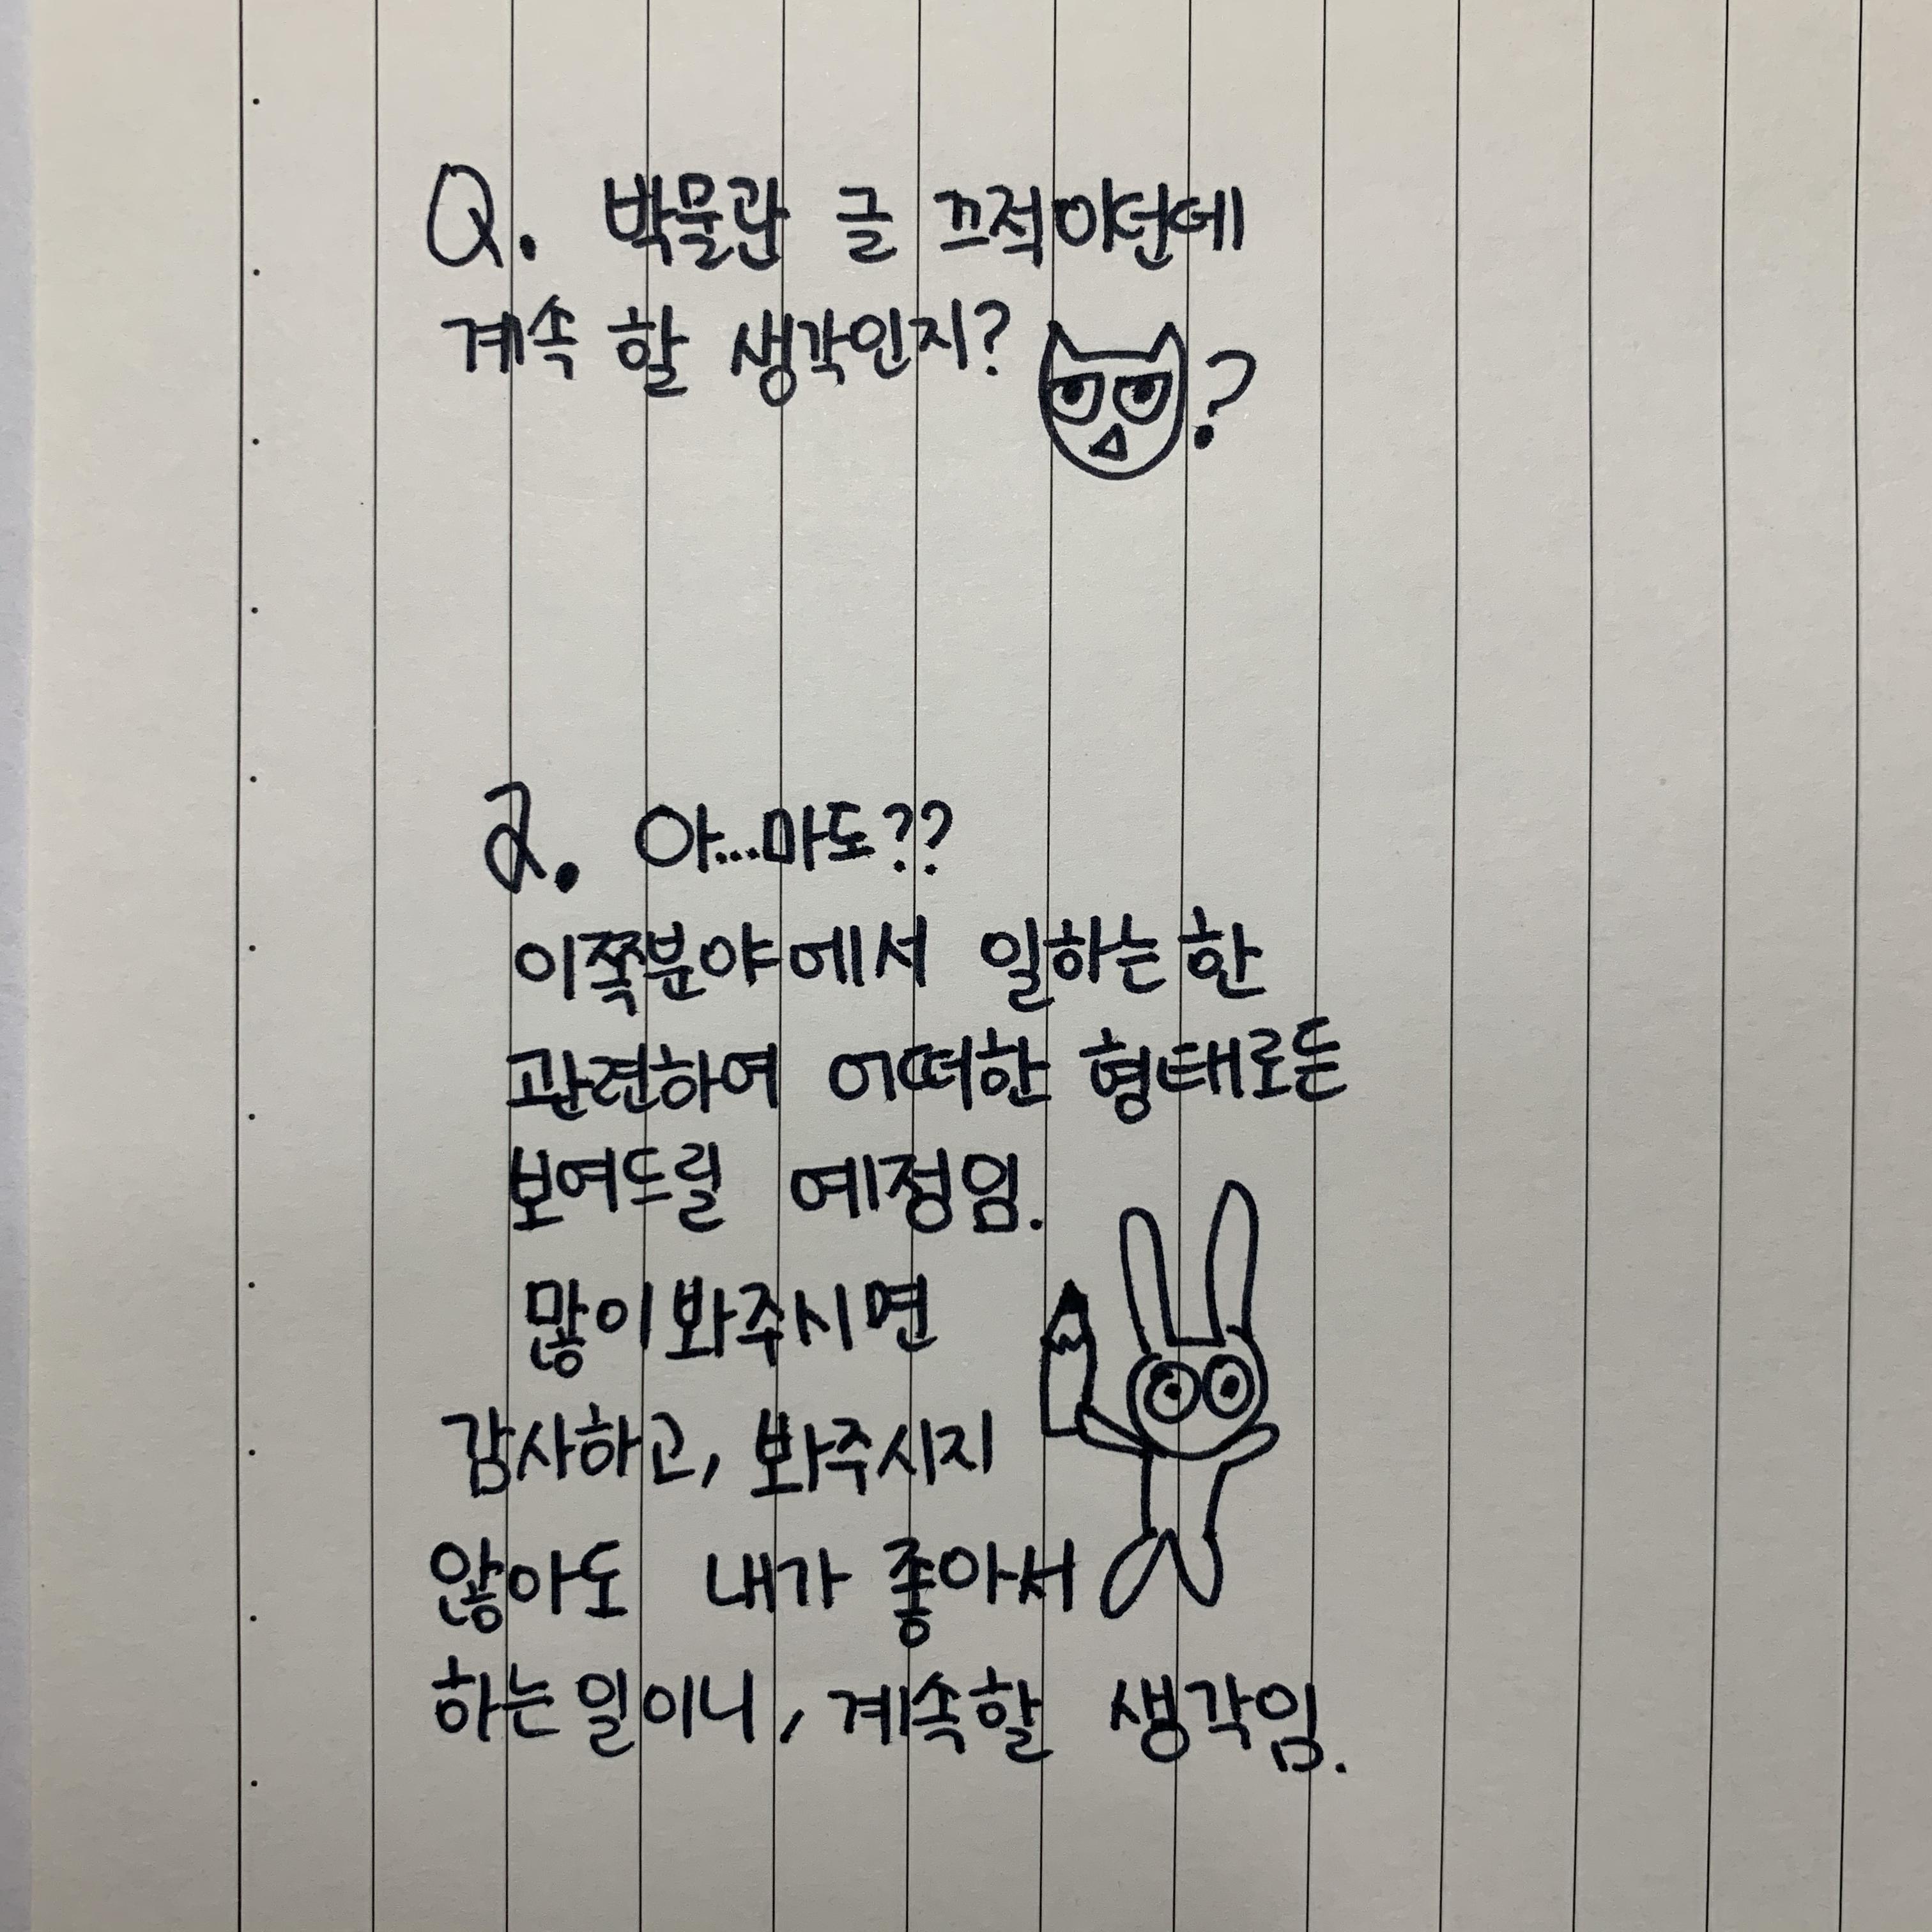 Q. 박물관 글 끄적이던데
계속 할 생각인지?
?
a. 아...마도??
이쪽분야에서 일하는한
관련하여 어떠한 형태로든
보여드릴 예정임.
많이봐주시면
감사하고, 봐주시지
않아도 내가 좋아서
하는일이니, 계속할 생각임.